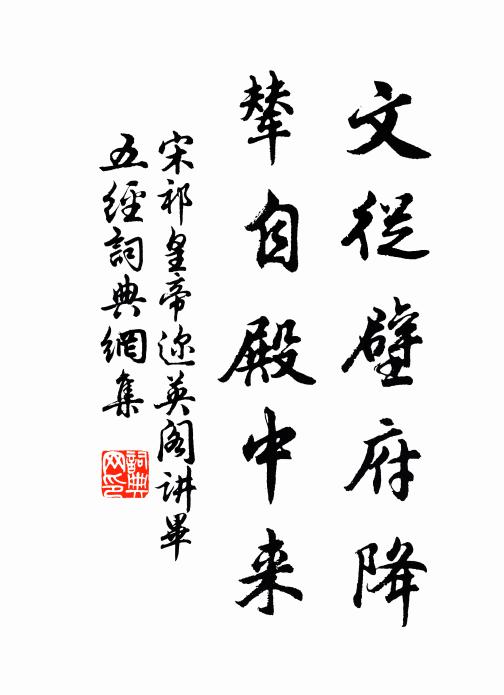 文從壁府降
輦自殿中来
宋祁皇帝迩英阁讲畢
五經詞典網集
詞典网印